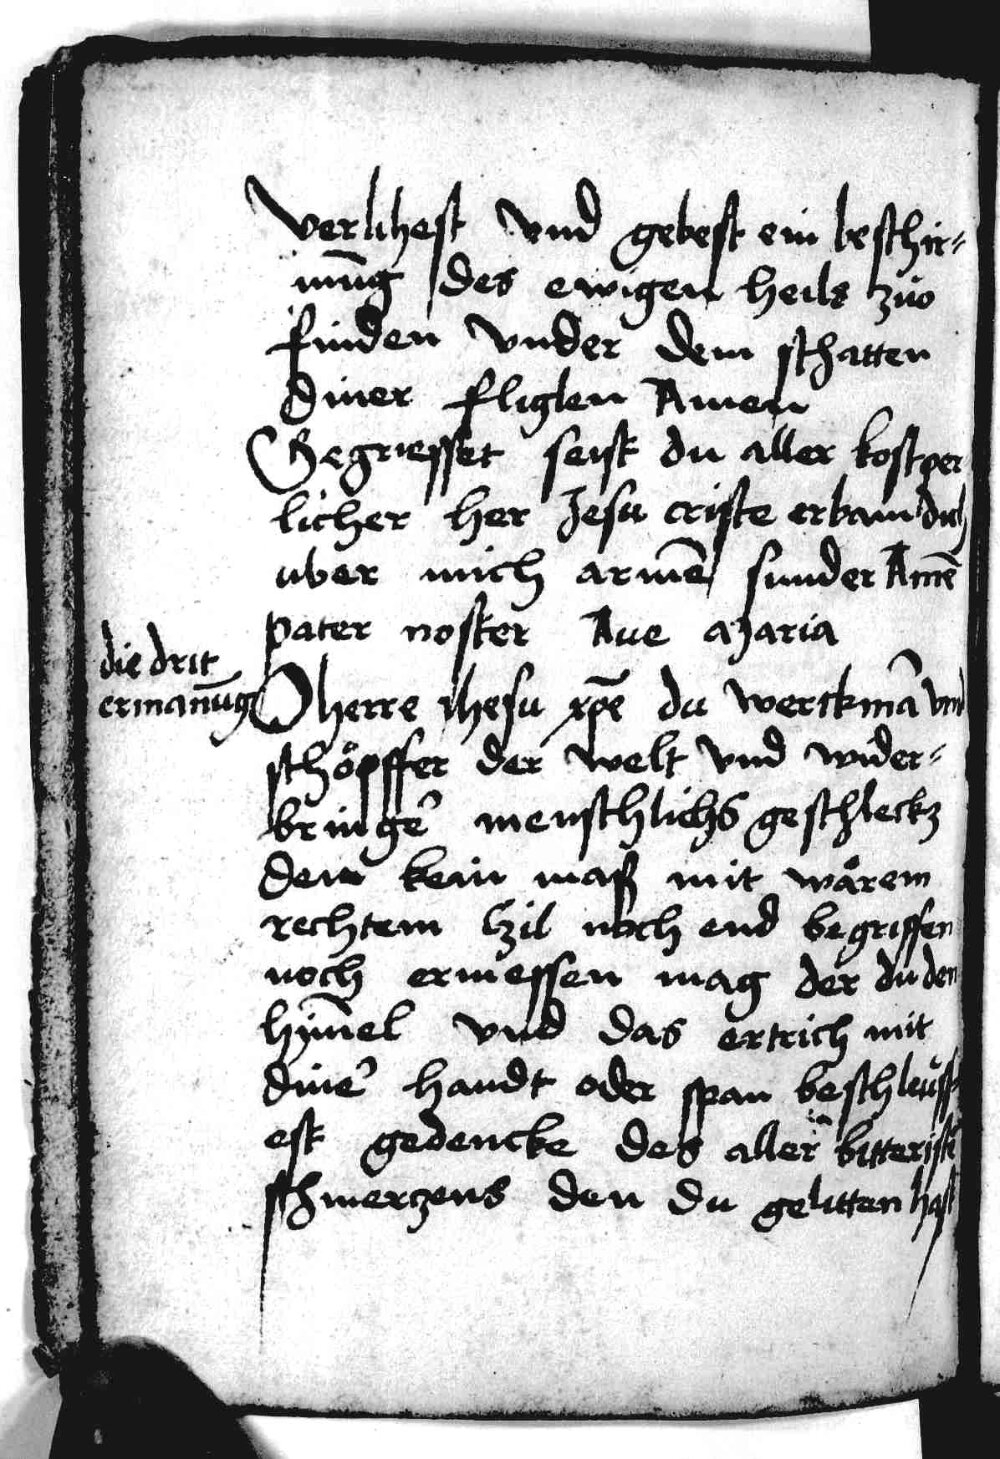 verlihest vnd gebest ein beschir-
mūng des ewigen heils zuo
finden vnder dem schatten
diner fliglen Amen
Gegriesset seist du aller kostper
licher her Jesu criste erbam dich
uber mich armē sunder Amē
pater noster Aue maria
die drit
ermanūg
O herre ihesu xp̄e du werckmā vnd
schöpffer der welt vnd wider-
bringer menschlichs geschleckz
dem kein maß mit wårem
rechtem Zil noch end begriffen
noch ermessen mag der du den
hȳmel vnd das ertrich mit
diner handt oder span beschleuss-
est gedencke des aller bitteristē
schmerczens den du gelitten hast